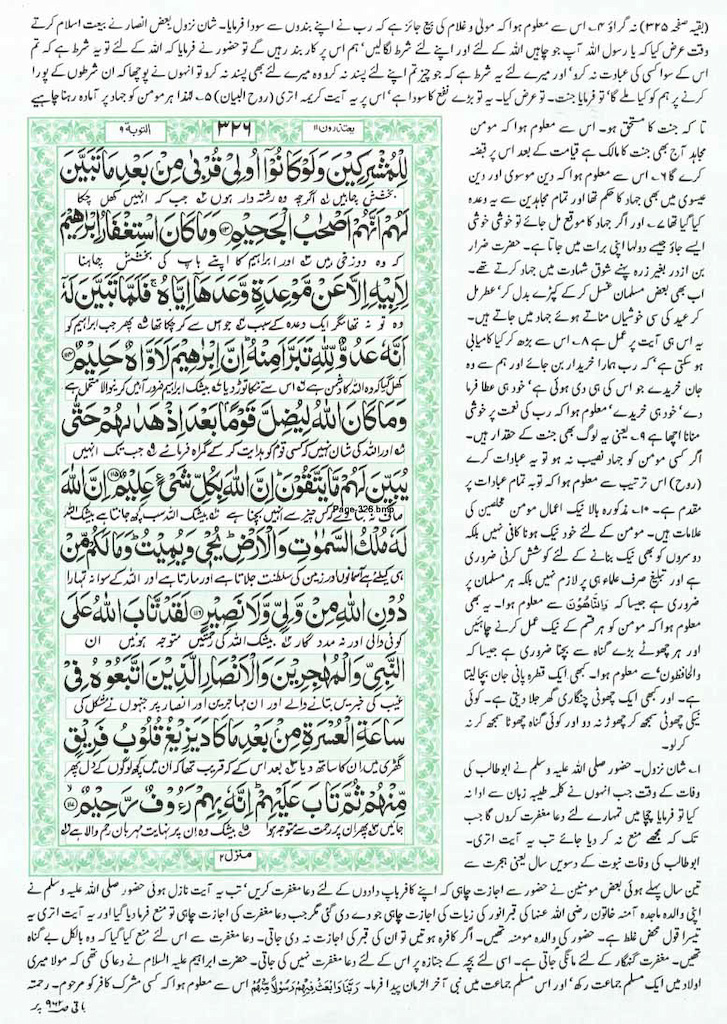 (بقیہ صفحہ ۳۲۵) نہ گراؤ ۴۔ اس سے معلوم ہوا کہ مولیٰ و غلام کی بیع جائز ہے کہ رب نے اپنے بندوں سے سودا فرمایا۔ شان نزول بعض انصار نے بیعت اسلام کرتے
وقت عرض کیا کہ یا رسول اللہ آپ جو چاہیں اللہ کے لئے اور اپنے لئے شرط لگالیں' ہم اس پر کاربند رہیں گے تو حضور نے فرمایا کہ اللہ کے لئے تو یہ شرط ہے کہ تم
اس کے سوا کسی کی عبادت نہ کرو' اور میرے لئے یہ شرط ہے کہ جو چیز تم اپنے لئے پسند نہ کرو وہ میرے لئے بھی پسند نہ کرو تو انہوں نے پوچھا کہ ان شرطوں کے پورا
کرنے پر ہم کو کیا ملے گا' تو فرمایا جنت۔ تو عرض کیا۔ یہ تو بڑے نفع کا سودا ہے' اس پر یہ آیت کریمہ اتری (روح البیان) ۵۔ لہذا ہر مومن کو جہاد پر آمادہ رہنا چاہیے
تا کہ جنت کا مستحق ہو۔ اس سے معلوم ہوا کہ مومن
مجاہد آج بھی جنت کا مالک ہے قیامت کے بعد اس پر قبضہ
کرے گا ۶۔ اس سے معلوم ہوا کہ دین موسوی اور دین
عیسوی میں بھی جہاد کا حکم تھا اور تمام مجاہدین سے یہ وعدہ
کیا گیا تھا ۷۔ اور اگر جہاد کا موقع مل جائے تو خوشی خوشی
ایسے جاؤ جیسے دولہا اپنی برات میں جاتا ہے۔ حضرت ضرار
بن ازدر بغیر زرہ پہنے شوق شہادت میں جہاد کرتے تھے۔
اب بھی بعض مسلمان غسل کر کے کپڑے بدل کر' عطر مل
کر عید کی سی خوشیاں مناتے ہوئے جہاد میں جاتے ہیں۔
یہ اس ہی آیت پر عمل ہے ۸۔ اس سے بڑھ کر کیا کامیابی
ہو سکتی ہے' کہ رب ہمارا خریدار بن جائے اور ہم سے وہ
جان خریدے جو اس کی ہی دی ہوئی ہے' خود ہی عطا فرما
دے' خود ہی خریدے' معلوم ہوا کہ رب کی نعمت پر خوشی
منانا اچھا ہے ۹۔ یعنی یہ لوگ بھی جنت کے حقدار ہیں۔
اگر کسی مومن کو جہاد نصیب نہ ہو تو یہ عبادات کرے
(روح) اس ترتیب سے معلوم ہوا کہ توبہ تمام عبادات پر
مقدم ہے۔ ۱۰۔ مذکورہ بالا نیک اعمال مومن مخلصین کی
علامات ہیں۔ مومن کے لئے خود نیک ہونا کافی نہیں بلکہ
دوسروں کو بھی نیک بنانے کے لئے کوشش کرنی ضروری
ہے اور تبلیغ صرف علماء ہی پر لازم نہیں بلکہ ہر مسلمان پر
ضروری ہے جیسا کہ وَالنَّاهُوْنَ سے معلوم ہوا۔ یہ بھی
معلوم ہوا کہ مومن کو ہر قسم کے نیک عمل کرنے چاہئیں
اور ہر چھوٹے بڑے گناہ سے بچنا ضروری ہے جیسا کہ
والحافظون سے معلوم ہوا۔ کبھی ایک قطرہ پانی جان بچالیتا
ہے۔ اور کبھی ایک چھوٹی چنگاری گھر جلا دیتی ہے۔ کوئی
نیکی چھوٹی سمجھ کر چھوڑ نہ دو اور کوئی گناہ چھوٹا سمجھ کر نہ
کر لو۔
۱۔ شان نزول۔ حضور صلی اللہ علیہ وسلم نے ابو طالب کی
وفات کے وقت جب انہوں نے کلمہ طیبہ زبان سے ادا نہ
کیا تو فرمایا چچا میں تمہارے لئے دعاء مغفرت کروں گا جب
تک کہ مجھے منع نہ کر دیا جائے تب یہ آیت اتری۔
ابو طالب کی وفات نبوت کے دسویں سال یعنی ہجرت سے
یعتذرون ۱۱
۳۲۶
التوبة ۹
لِلْمُشْرِكِيْنَ وَلَوْ كَانُوْٓا اُولِيْ قُرْبٰى مِنْۢ بَعْدِ مَا تَبَيَّنَ
بخشش چاہیں اگرچہ وہ رشتہ دار ہوں جب کہ انہیں کھل چکا
لَهُمْ اَنَّهُمْ اَصْحٰبُ الْجَحِيْمِ ۱۱۳ وَمَا كَانَ اسْتِغْفَارُ اِبْرٰهِيْمَ
کہ وہ دوزخی ہیں اور ابراہیم کا اپنے باپ کی بخشش چاہنا
لِاَبِيْهِ اِلَّا عَنْ مَّوْعِدَةٍ وَّعَدَهَآ اِيَّاهُ ۚ فَلَمَّا تَبَيَّنَ لَهٗٓ
وہ تو نہ تھا مگر ایک وعدہ کے سبب جو اس سے کر چکا تھا پھر جب ابراہیم کو
اَنَّهٗ عَدُوٌّ لِّلّٰهِ تَبَرَّاَ مِنْهُ ؕ اِنَّ اِبْرٰهِيْمَ لَاَوَّاهٌ حَلِيْمٌ ۱۱۴
کھل گیا کہ وہ اللہ کا دشمن ہے اس سے تنکا توڑ دیا بیشک ابراہیم ضرور آہیں کرنیوالا متحمل ہے
وَمَا كَانَ اللّٰهُ لِيُضِلَّ قَوْمًۢا بَعْدَ اِذْ هَدٰىهُمْ حَتّٰى
اور اللہ کی شان نہیں کہ کسی قوم کو ہدایت کر کے گمراہ فرمائے جب تک انہیں
يُبَيِّنَ لَهُمْ مَّا يَتَّقُوْنَ ؕ اِنَّ اللّٰهَ بِكُلِّ شَيْءٍ عَلِيْمٌ ۱۱۵ اِنَّ اللّٰهَ
صاف نہ بتا دے کہ کس چیز سے انہیں بچنا ہے بیشک اللہ سب کچھ جانتا ہے بیشک اللہ
Page-326.bmp
لَهٗ مُلْكُ السَّمٰوٰتِ وَالْاَرْضِ ؕ يُحْيٖ وَيُمِيْتُ ؕ وَمَا لَكُمْ مِّنْ
ہی کیلئے ہے آسمانوں اور زمین کی سلطنت جلاتا ہے اور مارتا ہے اور اللہ کے سوا نہ تمہارا
دُوْنِ اللّٰهِ مِنْ وَّلِيٍّ وَّلَا نَصِيْرٍ ۱۱۶ لَقَدْ تَّابَ اللّٰهُ عَلَى
کوئی والی اور نہ مددگار بیشک اللہ کی رحمتیں متوجہ ہوئیں ان
النَّبِيِّ وَالْمُهٰجِرِيْنَ وَالْاَنْصَارِ الَّذِيْنَ اتَّبَعُوْهُ فِيْ
غیب کی خبریں بتانے والے اور ان مہاجرین اور انصار پر جنہوں نے مشکل کی
سَاعَةِ الْعُسْرَةِ مِنْۢ بَعْدِ مَا كَادَ يَزِيْغُ قُلُوْبُ فَرِيْقٍ
گھڑی میں ان کا ساتھ دیا بعد اس کے کہ قریب تھا کہ ان میں کچھ لوگوں کے دل پھر
مِّنْهُمْ ثُمَّ تَابَ عَلَيْهِمْ ؕ اِنَّهٗ بِهِمْ رَءُوْفٌ رَّحِيْمٌ ۱۱۷
جائیں پھر ان پر رحمت سے متوجہ ہوا بیشک وہ ان پر نہایت مہربان رحم والا ہے
منزل ۲
تین سال پہلے ہوئی بعض مومنین نے حضور سے اجازت چاہی کہ اپنے کافر باپ دادوں کے لئے دعا مغفرت کریں' تب یہ آیت نازل ہوئی حضور صلی اللہ علیہ وسلم نے
اپنی والدہ ماجدہ آمنہ خاتون رضی اللہ عنہا کی قبر انور کی زیارت کی اجازت چاہی جو دے دی گئی مگر جب دعا مغفرت کی اجازت چاہی تو منع فرما دیا گیا اور یہ آیت اتری یہ
تیسرا قول محض غلط ہے۔ حضور کی والدہ مومنہ تھیں۔ اگر کافرہ ہوتیں تو ان کی قبر کی اجازت نہ دی جاتی۔ دعا مغفرت سے اس لئے منع کیا گیا کہ وہ بالکل بے گناہ
تھیں۔ مغفرت گنہگار کے لئے مانگی جاتی ہے۔ اسی لئے بچہ کے جنازہ پر اس کے لئے دعاء مغفرت نہیں کی جاتی۔ حضرت ابراہیم علیہ السلام نے دعا کی تھی کہ مولا میری
اولاد میں ایک مسلم جماعت رکھ' اور اس مسلم جماعت میں نبی آخر الزمان پیدا فرما۔ رَبَّنَا وَابْعَثْ فِيْهِمْ رَسُوْلًا مِّنْهُمْ اس سے معلوم ہوا کہ کسی مشرک کافر کو مرحوم۔ رحمتہ
باقی صفحہ ۹۶۲ پر